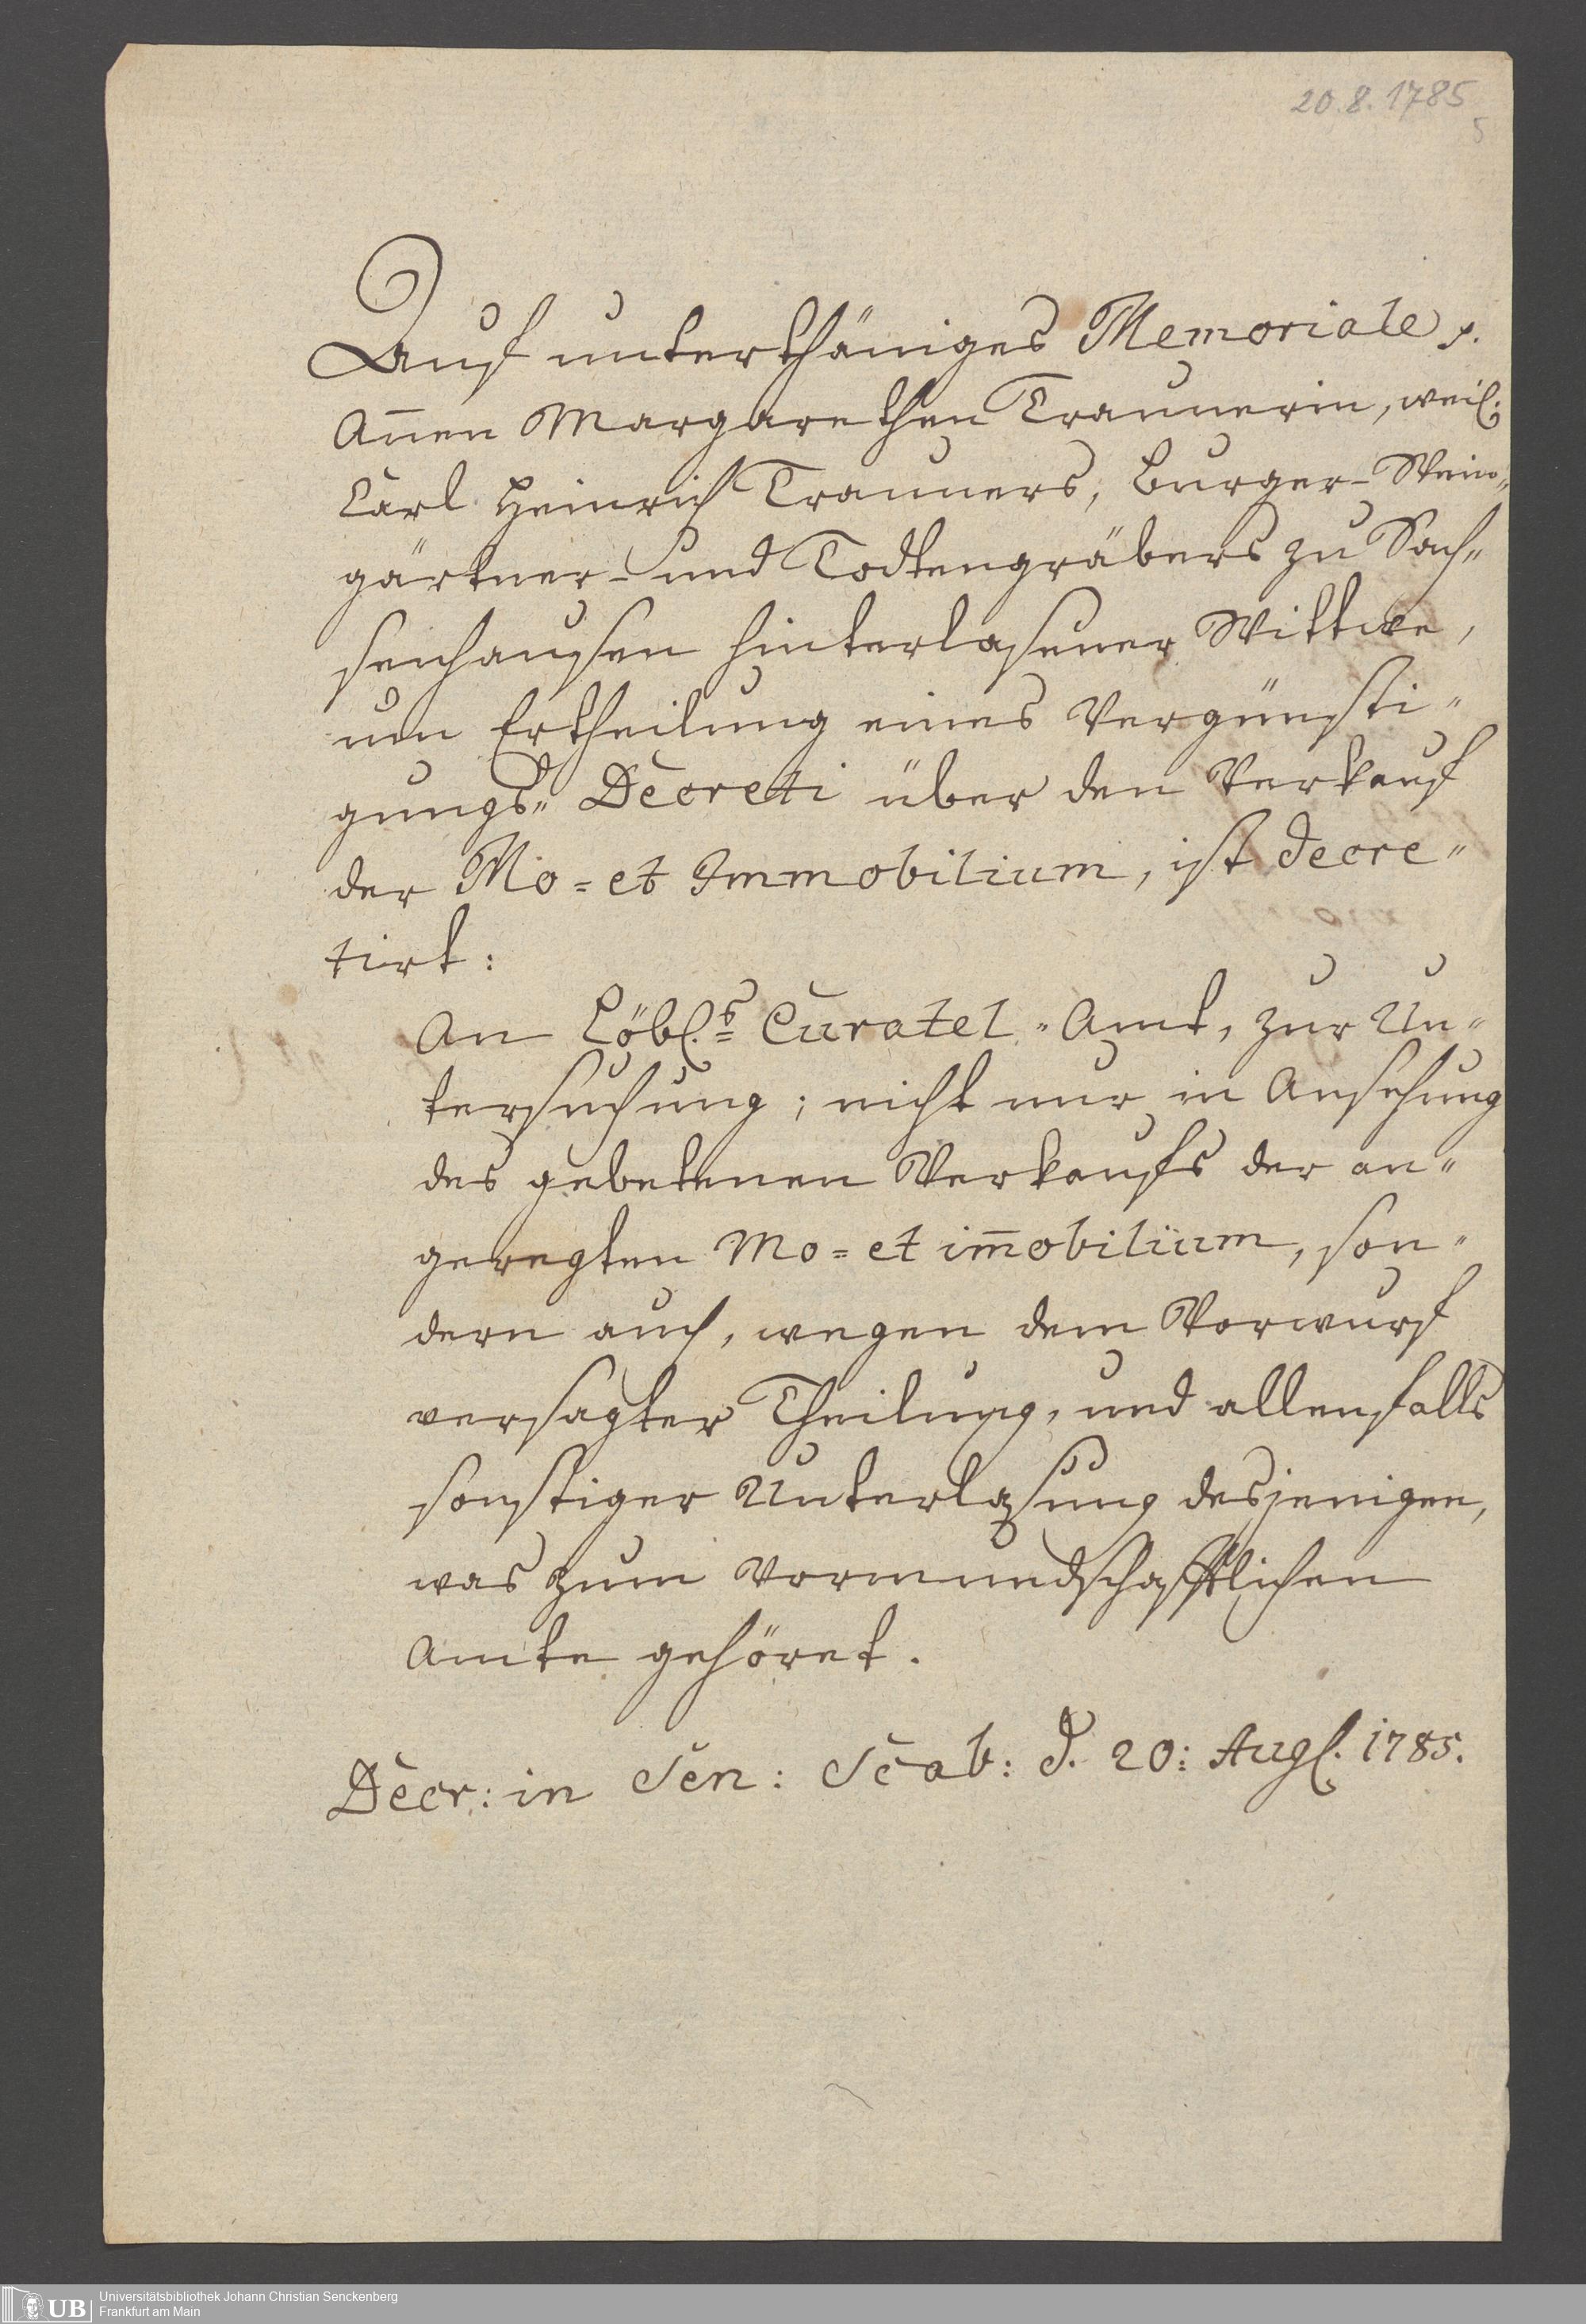 20.8.1785
5
Auf unterthäniges Memoriale p.
Añen Margarethen Traunerin, weil:
Carl Heinrich Trauners, Burger- Wein„
gärtner- und Todtengräbers zu Sach„
senhausen hinterlaßener Wittwe,
um Ertheilung eines Vergünsti„
gungs„ Decreti über den Verkauf
der Mo= et Immobilium, ist decre„
tirt:
An Löbl.s Curatel„Amt, zur Un„
tersuchung; nicht nur in Ansehung
des gebetenen Verkaufs der an„
geregten Mo= et im̃obilium, son„
dern auch, wegen dem Vorwurf
versagter Theilung, und allenfalls
sonstiger Unterlaßung desjenigen,
was zum Vormundschafftlichen
Amte gehöret.
Decr: in Sen: Scab: d. 20: Augl. 1785.
UB
Universitätsbibliothek Johann Christian Senckenberg
Frankfurt am Main